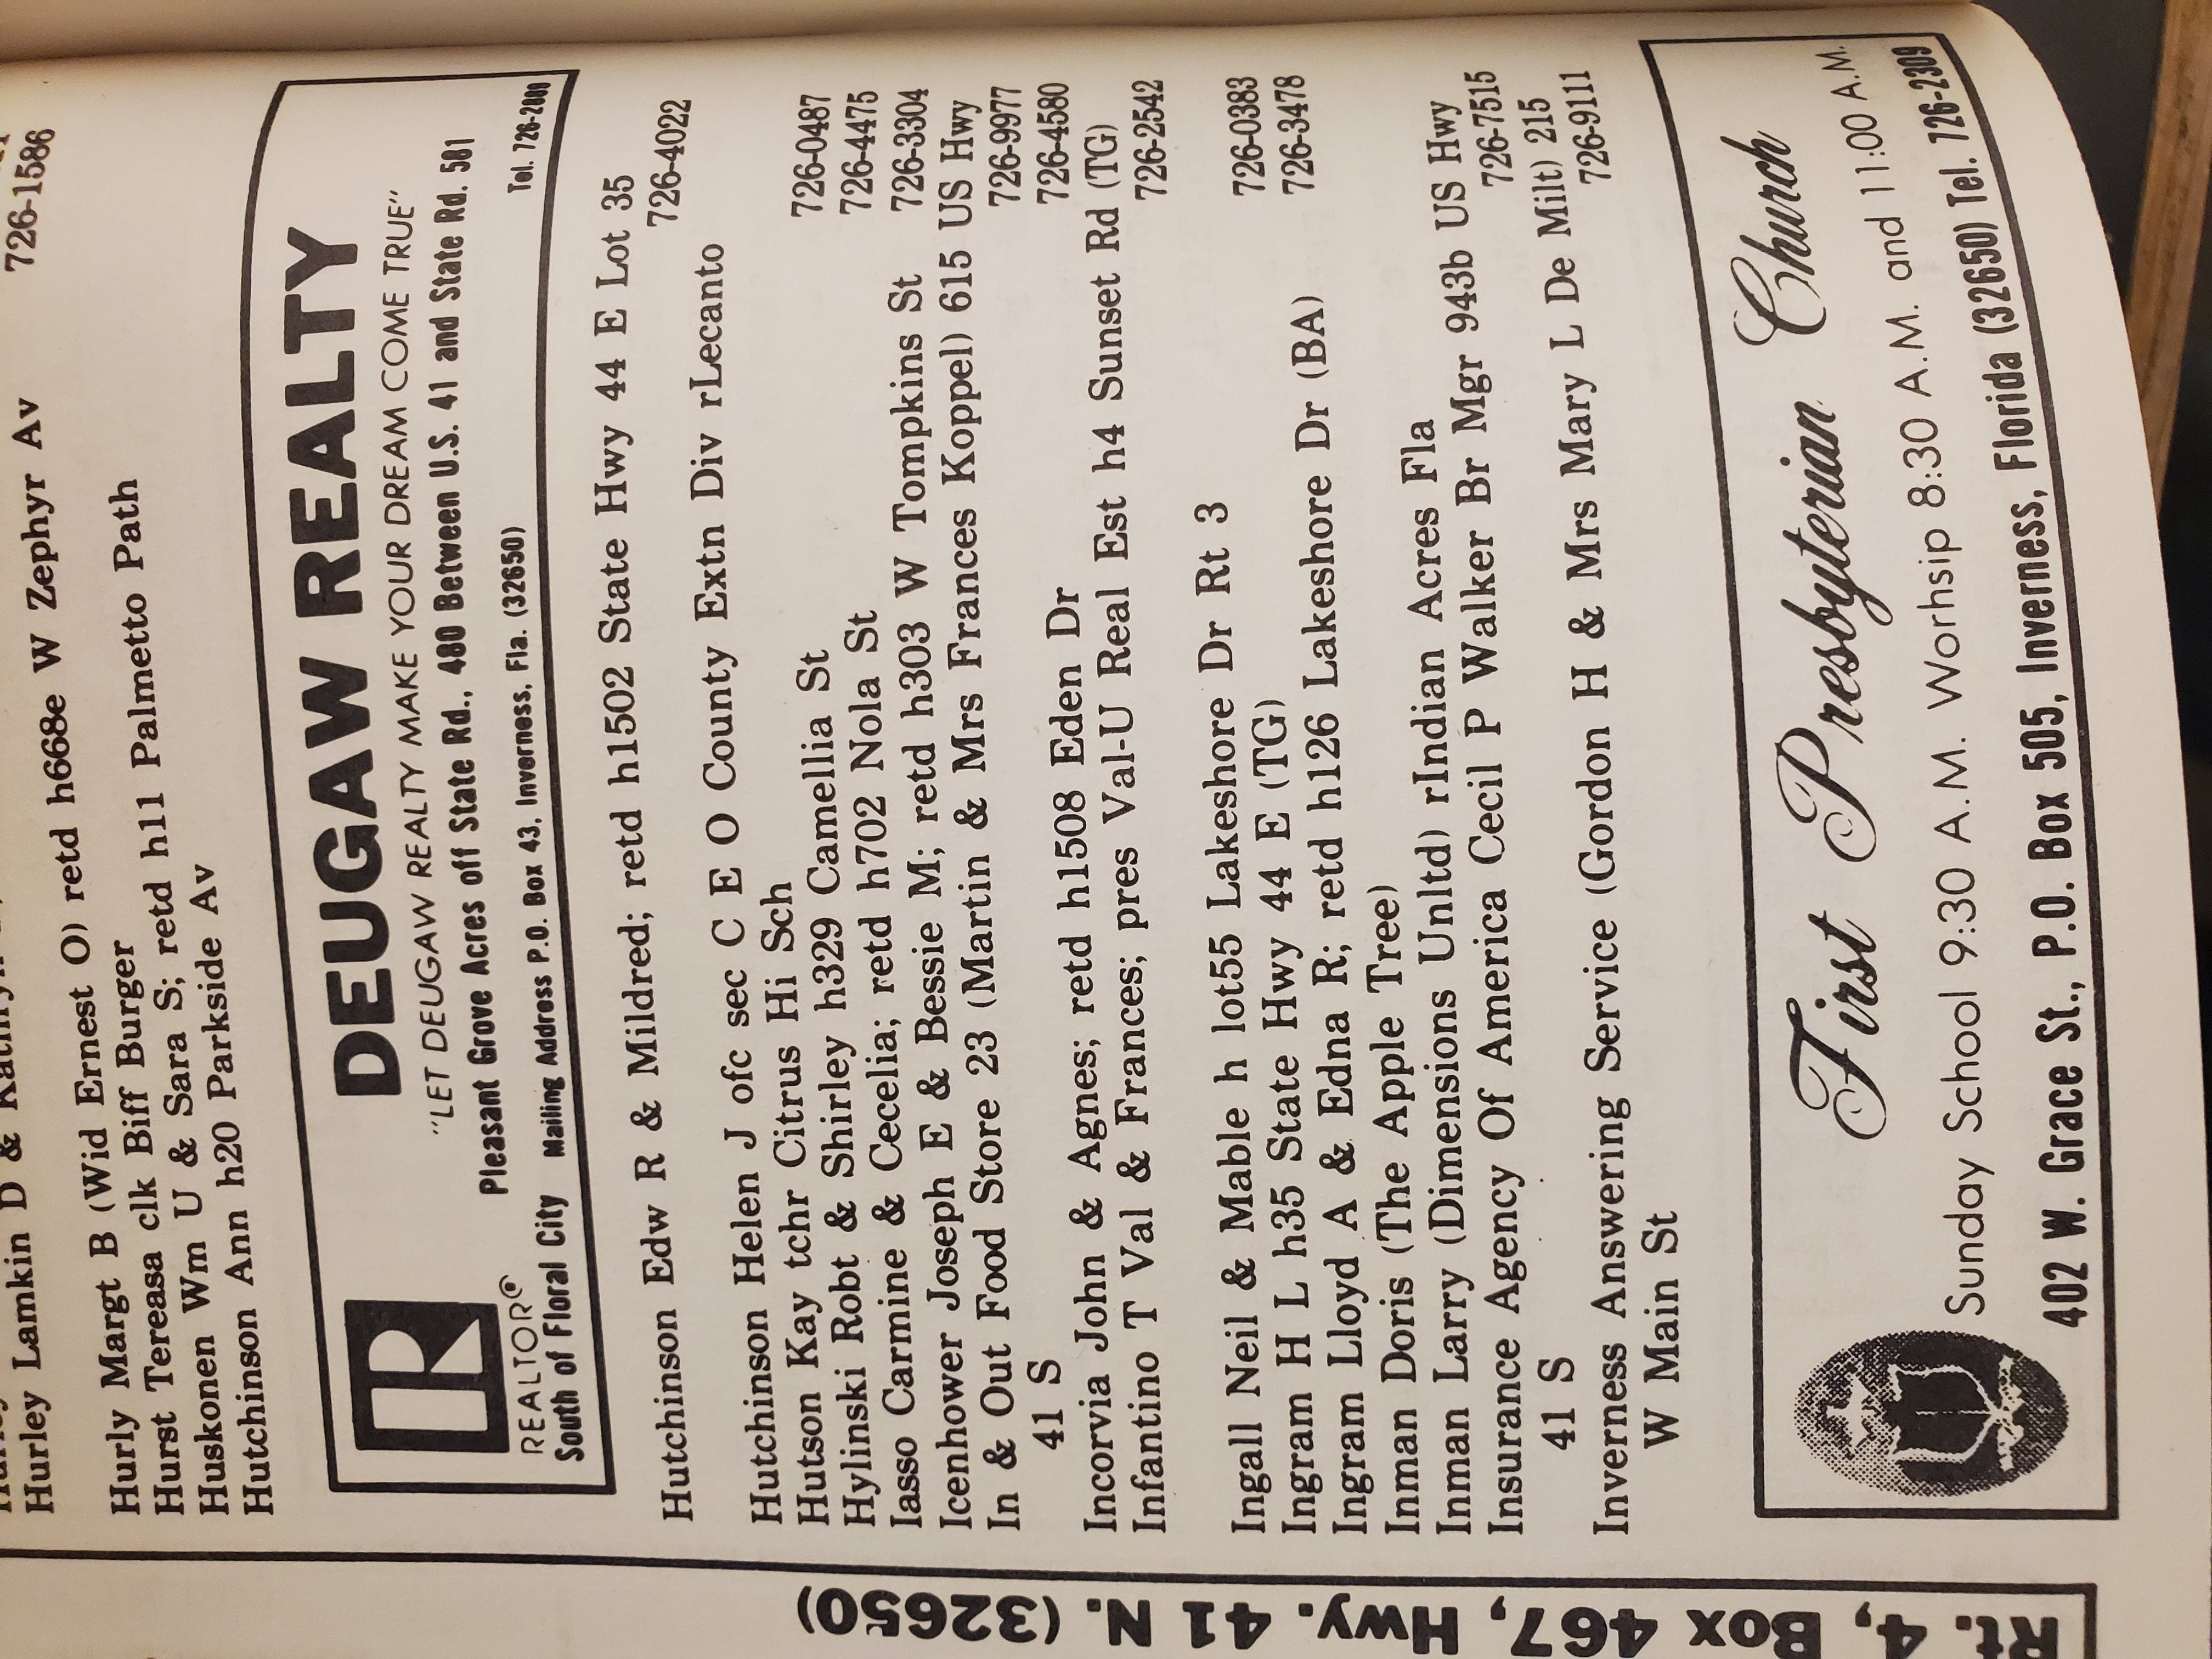 Hurley Lamkin D & Kathryn
retd h668e W Zephyr Av
726-1586
Hurly Margt B (Wid Ernest O)
Hurst Tereasa clk Biff Burger
Huskonen Wm U & Sara S; retd h11 Palmetto Path
Hutchinson Ann h20 Parkside Av
DEUGAW REALTY
"LET DEUGAW REALTY MAKE YOUR DREAM COME TRUE"
Pleasant Grove Acres off State Rd., 480 Between U.S. 41 and State Rd. 581
REALTOR®
South of Floral City Mailing Address P.O. Box 43, Inverness, Fla. (32650) Tel. 726-2000
Hutchinson Edw R & Mildred; retd h1502 State Hwy 44 E Lot 35
726-4022
Hutchinson Helen J ofc sec C E O County Extn Div rLecanto
Hutson Kay tchr Citrus Hi Sch
Hylinski Robt & Shirley h329 Camellia St 726-0487
Iasso Carmine & Cecelia; retd h702 Nola St 726-4475
Icenhower Joseph E & Bessie M; retd h303 W Tompkins St 726-3304
In & Out Food Store 23 (Martin & Mrs Frances Koppel) 615 US Hwy
41 S 726-9977
Incorvia John & Agnes; retd h1508 Eden Dr 726-4580
Infantino T Val & Frances; pres Val-U Real Est h4 Sunset Rd (TG)
726-2542
Ingall Neil & Mable h lot55 Lakeshore Dr Rt 3
Ingram H L h35 State Hwy 44 E (TG) 726-0383
Ingram Lloyd A & Edna R; retd h126 Lakeshore Dr (BA) 726-3478
Inman Doris (The Apple Tree)
Inman Larry (Dimensions Unltd) rIndian Acres Fla
Insurance Agency Of America Cecil P Walker Br Mgr 943b US Hwy
41 S 726-7515
Inverness Answering Service (Gordon H & Mrs Mary L De Milt) 215
W Main St 726-9111
First Presbyterian Church
Sunday School 9:30 A.M. Worhsip 8:30 A.M. and 11:00 A.M.
402 W. Grace St., P.O. Box 505, Inverness, Florida (32650) Tel. 726-2309
Rt. 4, Box 467, Hwy. 41 N. (32650)